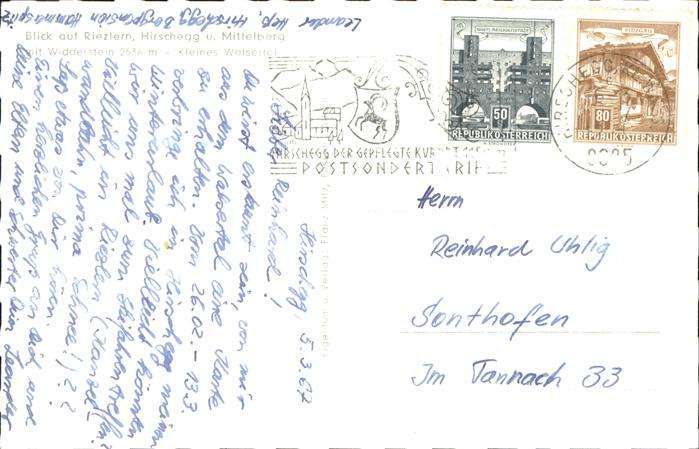 Leander Hirschegg Bergpension Hammerspitz
Blick auf Riezlern, Hirschegg u. Mittelberg
mit Widderstein 2536 m - Kleines Walsertal
50
REPUBLIK ÖSTERREICH
80
REPUBLIK ÖSTERREICH
HIRSCHEGG DER GEPFLEGTE
POSTSONDERTARIF
HIRSCHEGG
Hirschegg, 5.3.67
Lieber Reinhard!
Du wirst erstaunt sein, von mir
aus dem Walsertal eine Karte
zu erhalten. Vom 26.02. – 13.3.
verbringe ich in Hirschegg meinen
Winterurlaub. Vielleicht könnten
wir uns mal zum Skifahren treffen?
Vielleicht in Riezlern (Kanzel-
wandbahn, prima Schnee!)??
Laß etwas von Dir hören.
Einen herzlichen Gruß an Dich und
Deine Eltern und Dein Leander
Herrn
Reinhard Uhlig
Sonthofen
Im Tannach 33